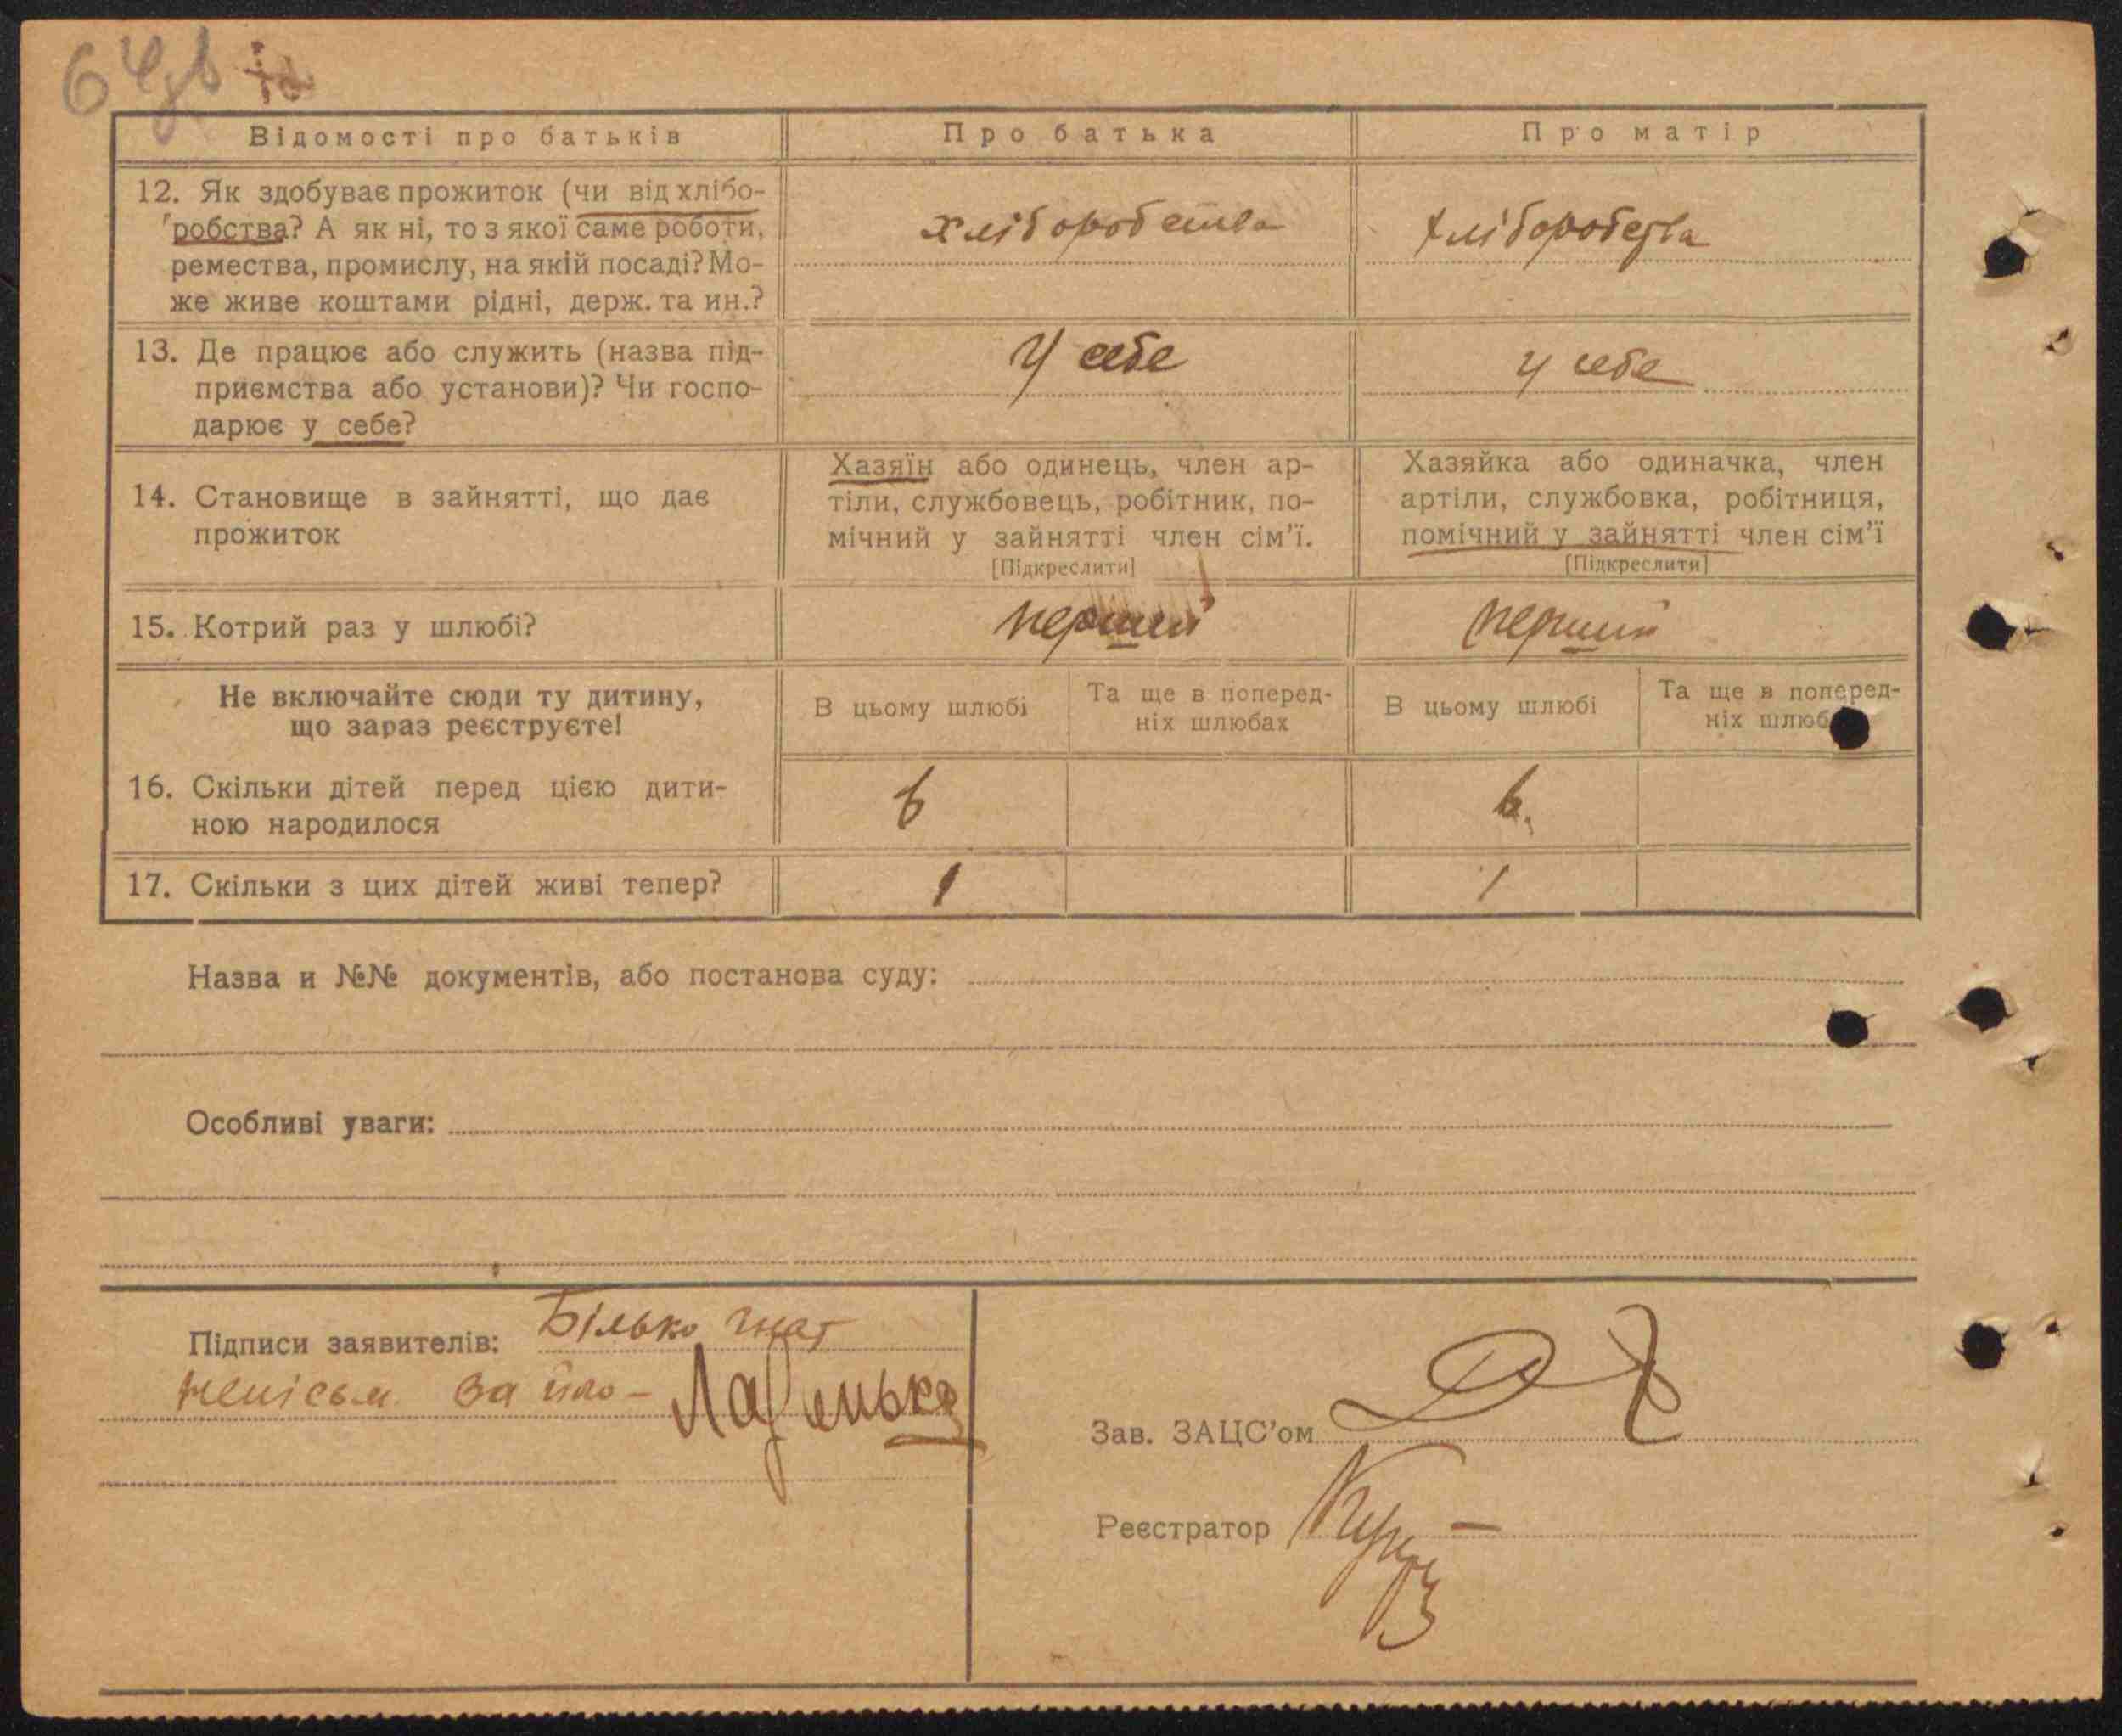 64
Відомості про батьків
Про батька
Про матір
12. Як здобуває прожиток (чи від хлібо-
робства? А як ні, то з якої саме роботи,
ремества, промислу, на якій посаді? Мо-
же живе коштами рідні, держ. та ин.?
хліборобства
хліборобства
13. Де працює або служить (назва під-
приємства або установи)? Чи госпо-
дарює у себе?
У себе
у себе
14. Становище в зайнятті, що дає
прожиток
Хазяїн або одинець, член ар-
тіли, службовець, робітник, по-
мічний у зайнятті член сім'ї.
[Підкреслити]
Хазяйка або одиначка, член
артіли, службовка, робітниця,
помічний у зайнятті член сім'ї
[Підкреслити]
15. Котрий раз у шлюбі?
перший
перший
Не включайте сюди ту дитину,
що зараз реєструєте!
В цьому шлюбі
Та ще в поперед-
ніх шлюбах
В цьому шлюбі
Та ще в поперед-
ніх шлюб
16. Скільки дітей перед цією дити-
ною народилося
6
6.
17. Скільки з цих дітей живі тепер?
1
1
Назва и №№ документів, або постанова суду:
Особливі уваги:
Підписи заявителів: Білько Гнат
неписьм. за його-
Зав. ЗАЦС'ом
Реєстратор